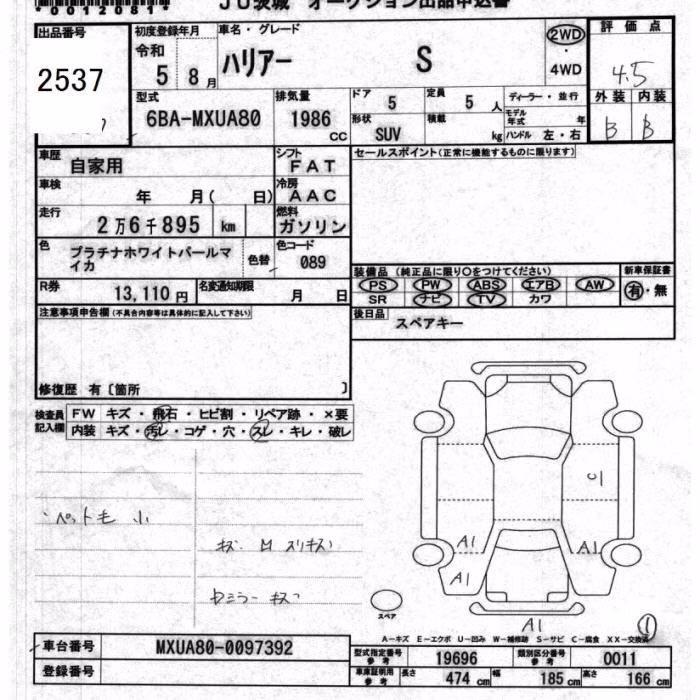 00120811
JU茨城 オークション出品申込書
出品番号
2537
初度登録年月
令和
5 8月
車名・グレード
ハリアー S
2WD
・
4WD
評価点
4.5
外装 内装
B B
型式
6BA-MXUA80
排気量
1986 cc
ドア 5
定員 5 人
形状 SUV
積載 kg
ディーラー・並行
モデル年式 年
ハンドル 左・右
車歴
自家用
シフト
FAT
セールスポイント(正常に機能するものに限ります)
車検
年 月( 日)
冷房
AAC
走行
2万6千895 km
燃料
ガソリン
色
プラチナホワイトパールマイカ
色替
色コード
089
R券
13,110円
名変通知期限
月 日
装備品 (純正品に限り○をつけてください)
PS PW ABS エアB AW
SR ナビ TV カワ
新車保証書
有・無
後日品
スペアキー
注意事項申告欄(不具合内容等は具体的に記入して下さい)
修復歴 有〔箇所 〕
検査員記入欄
FW キズ・飛石・ヒビ割・リペア跡・×要
内装 キズ・汚レ・コゲ・穴・スレ・キレ・破レ
ペット毛 小
キズ M スリキズ
A1
A1
A1
A1
スペア
①
A-キズ E-エクボ U-凹み W-補修跡 S-サビ C-腐食 XX-交換済
車台番号
MXUA80-0097392
登録番号
型式指定番号 参考
19696
類別区分番号 参考
0011
車庫証明用 参考
長さ 474 cm
幅 185 cm
高さ 166 cm